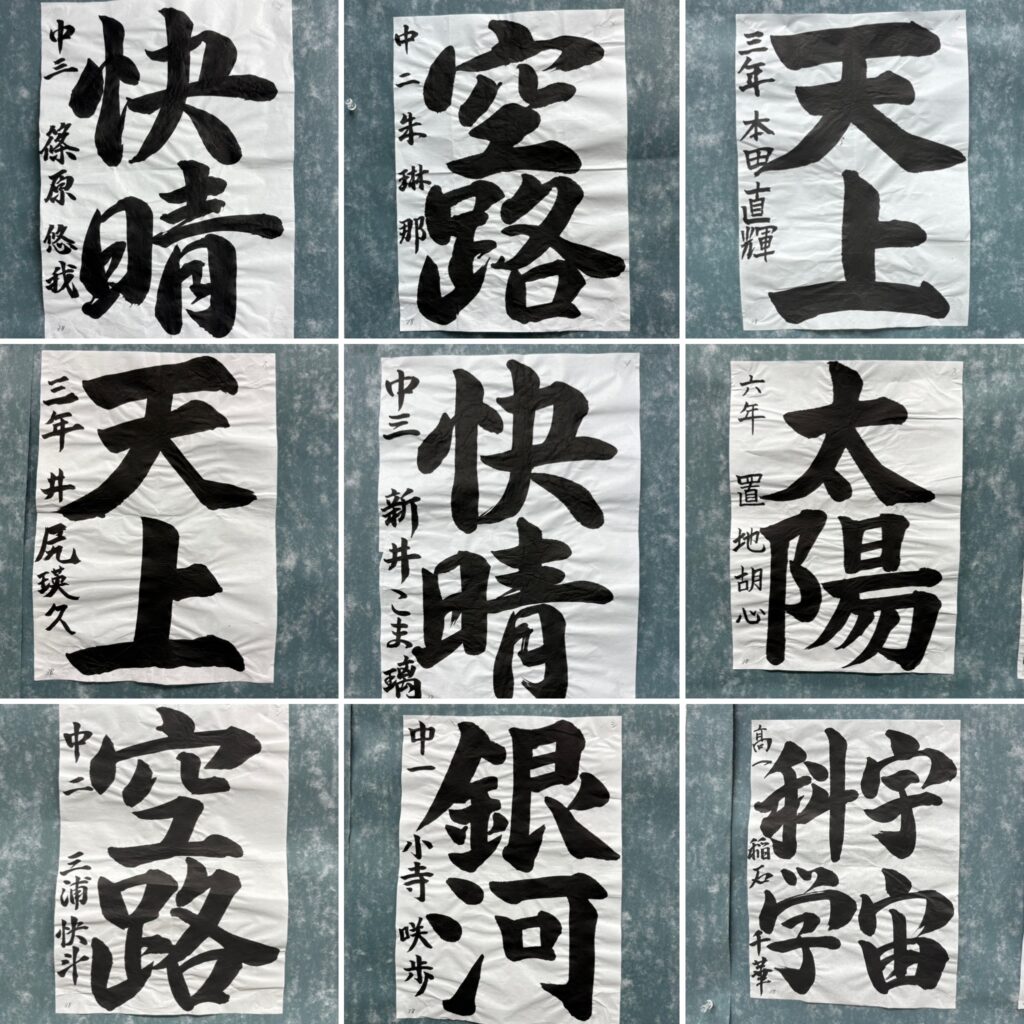 快晴
中三 篠原悠我
空路
中二 朱琳那
天上
三年 本田直輝
天上
三年 井尻瑛久
快晴
中三 新井こま璃
太陽
六年 置地胡心
空路
中二 三浦快斗
銀河
中一 小寺咲歩
宇宙
科学
高一 稲石千華